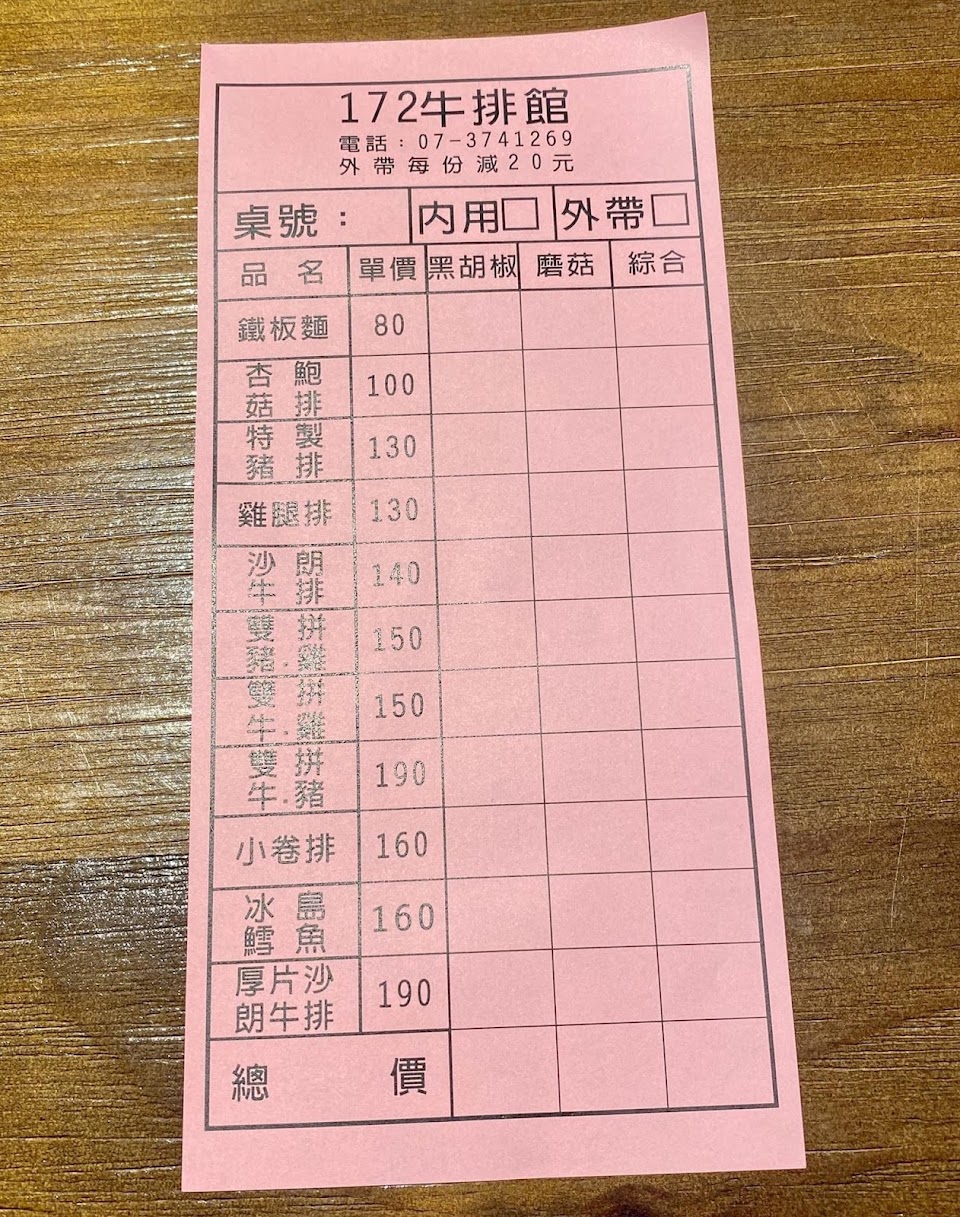 172牛排館
電話：07-3741269
外帶每份減20元
桌號： 內用□ 外帶□
品名 單價 黑胡椒 磨菇 綜合
鐵板麵 80
杏鮑
菇排 100
特製
豬排 130
雞腿排 130
沙朗
牛排 140
雙拼
豬.雞 150
雙拼
牛.雞 150
雙拼
牛.豬 190
小卷排 160
冰島
鱈魚 160
厚片沙
朗牛排 190
總價